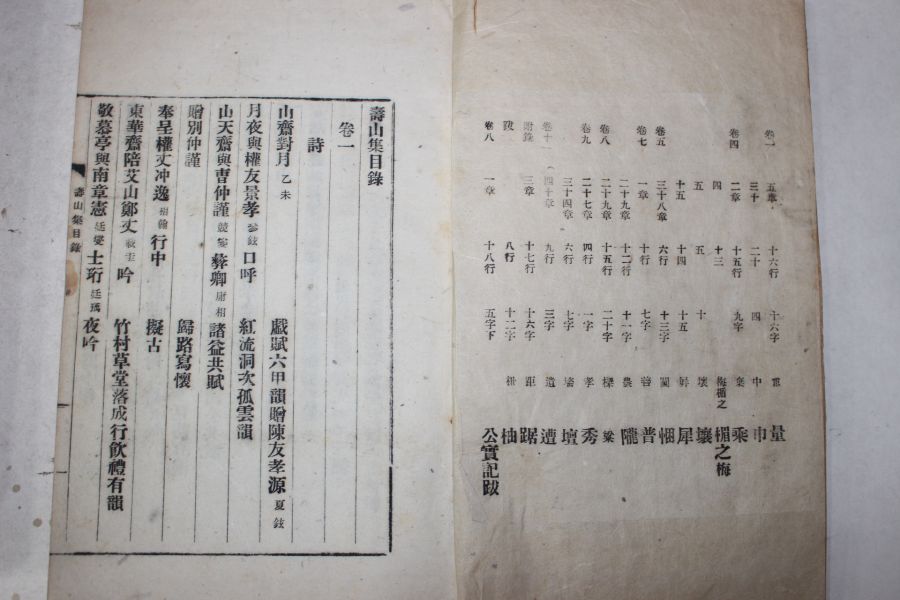 卷一 五章 十六行 十六字 重 量
三十 二十 四 中 巾
卷四 二章 十五行 九字 乘
四 十三 梅楣之 楣之梅
五 五 十 壞 壤
十五 十四 十五 犀
卷五 三十八章 六行 十三字 悃
卷七 一章 十行 七字 普
二十九章 十二行 十一字 農 隴
卷八 二十九章 十五行 二十字 樑 粱
卷九 二十七章 四行 一字 孝 秀
三十四章 六行 七字 壇
卷十一 四十章 九行 三字 遺 遭
附錄 三章 十七行 十六字 距 踞
跋 八行 十二字 柚
卷八 一章 十八行 五字下 公實記跋
壽山集目錄
卷一
詩
山齋對月 乙未 戱賦六甲韻贈陳友孝源 夏鉉
月夜與權友景孝 參鉉 口呼 紅流洞次孤雲韻
山天齋與曺仲謹 兢燮 彝卿 諸益共賦
贈別仲謹 歸路寫懷
奉呈權丈冲逸 相翰 行中 擬古
東華齋陪艾山鄭丈 載圭 吟 竹村草堂落成行飮禮有韻
敬慕亭與南章憲 廷燮 士珩 廷瑀 夜吟
壽山集目錄